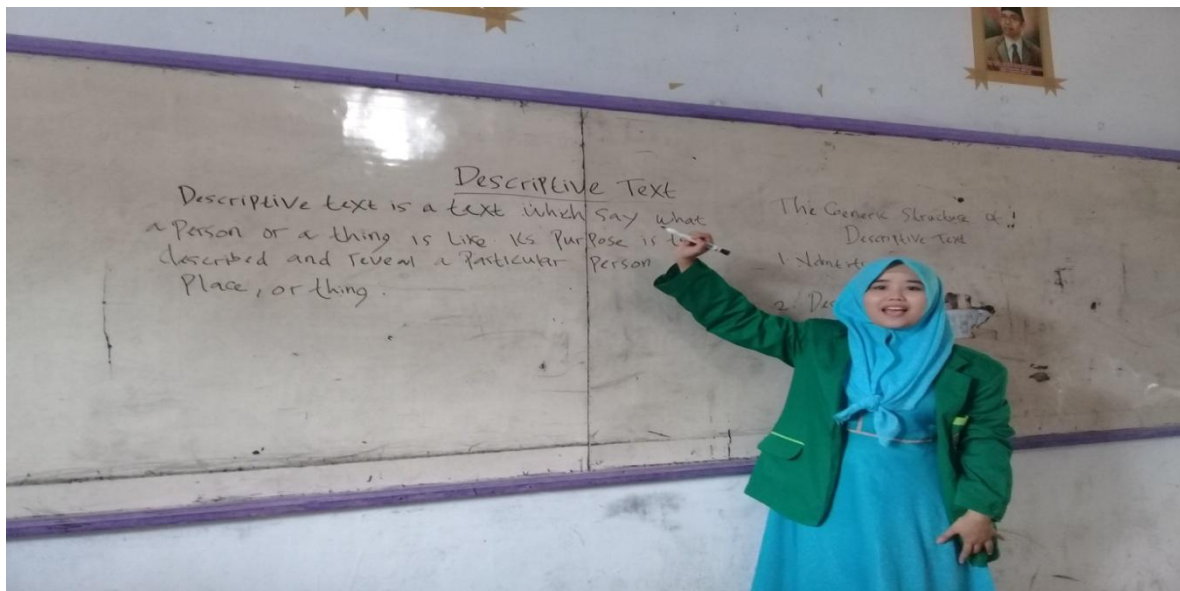 Descriptive Text
Descriptive text is a text which say what
a Person or a thing is Like. Its Purpose is to
described and reveal a Particular Person
Place, or thing.
The Generic Structure of :
Descriptive Text
1.
2.